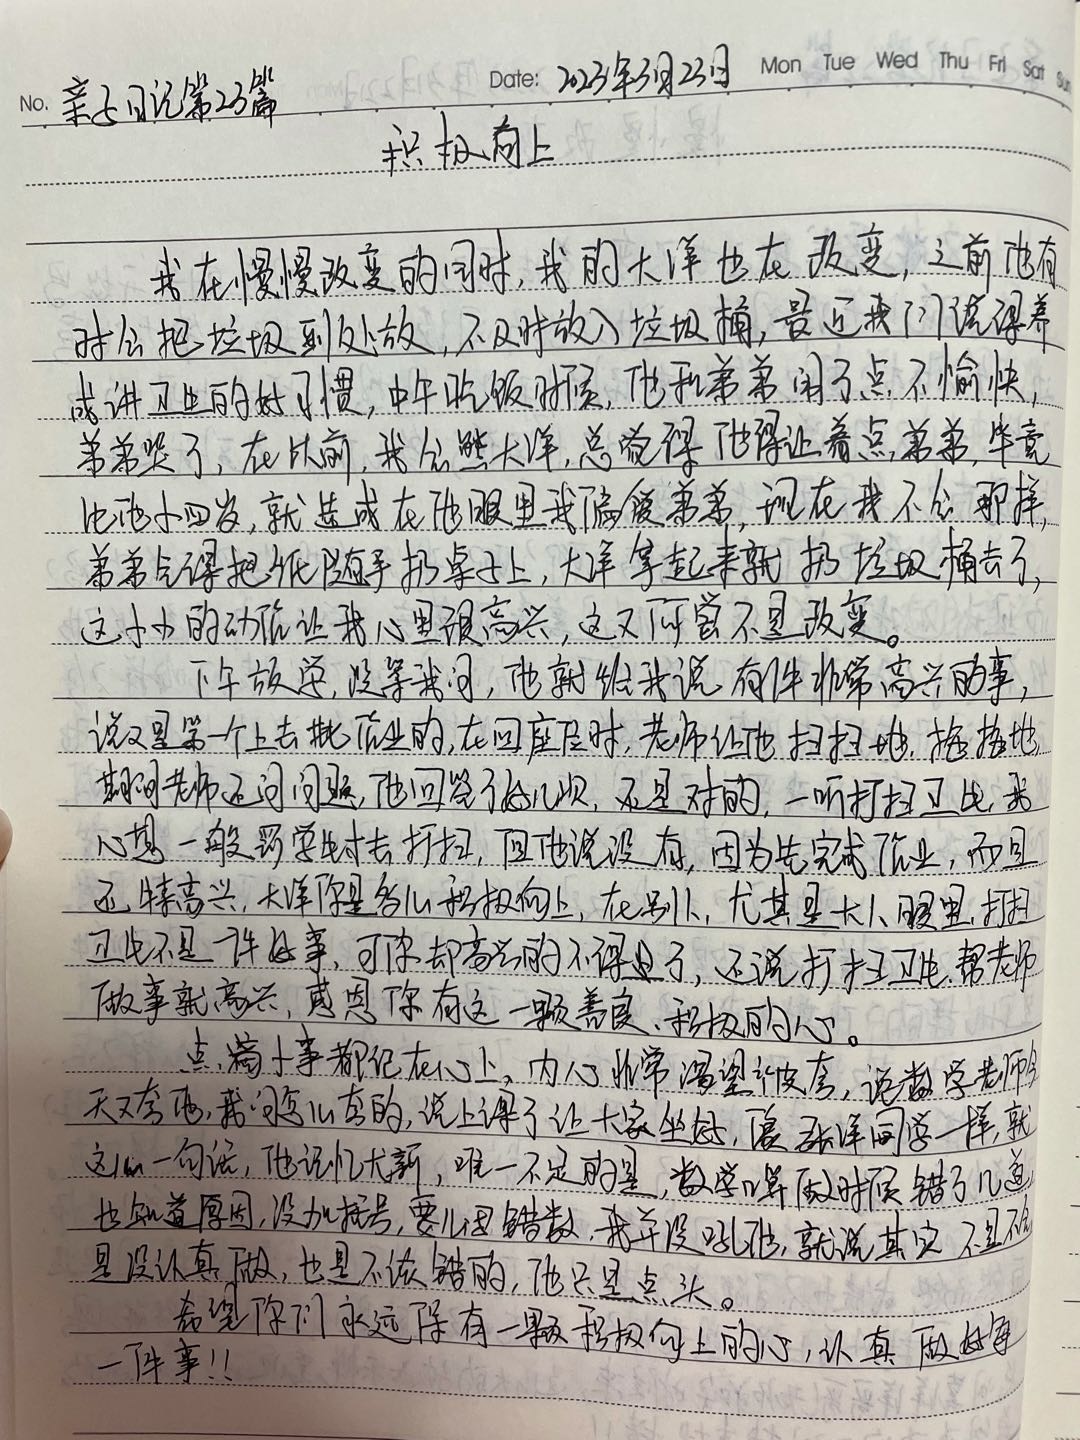 No. 亲子日记第23篇 Date: 2023年3月23日 Mon Tue Wed Thu Fri Sat Sun
积极向上
我在慢慢改变的同时,我的大洋也在改变,之前他有
时会把垃圾到处放,不及时放入垃圾桶,最近我们说得养
成讲卫生的好习惯,中午吃饭时候,他和弟弟闹了点不愉快,
弟弟哭了,在以前,我会熊大洋,总觉得他得让着点弟弟,毕竟
比他小四岁,就造成在他眼里我偏爱弟弟,现在我不会那样,
弟弟包课把纸随手扔桌子上,大洋拿起来就扔垃圾桶去了,
这小小的动作让我心里很高兴,这又何尝不是改变。
下午放学,没等我问,他就给我说有件非常高兴的事,
说又是第一个上去批作业的,在回座位时,老师让他扫扫地,拖拖地,
期间老师还问问题,他回答了好几次,还是对的,一听打扫卫生,我
心想一般罚学生才去打扫,但他说没有,因为先完成作业,而且
还特高兴,大洋你是多么积极向上,在别人,尤其是大人眼里,打扫
卫生不是一件好事,可你却高兴的不得了,还说打扫卫生,帮老师
做事就高兴,感恩你有这一颗善良、积极的心。
点滴小事都记在心上,内心非常渴望被夸,说数学老师今
天又夸他,我问怎么夸的,说上课了让大家坐好,像张洋同学一样,就
这么一句话,他记忆犹新,唯一不足的是,数学口算做时候错了几道,
也知道原因,没加括号,要么因错数,我并没吼他,就说其实不是不会
是没认真做,也是不该错的,他只是点头。
希望你们永远保有一颗积极向上的心,认真做好每
一件事!!